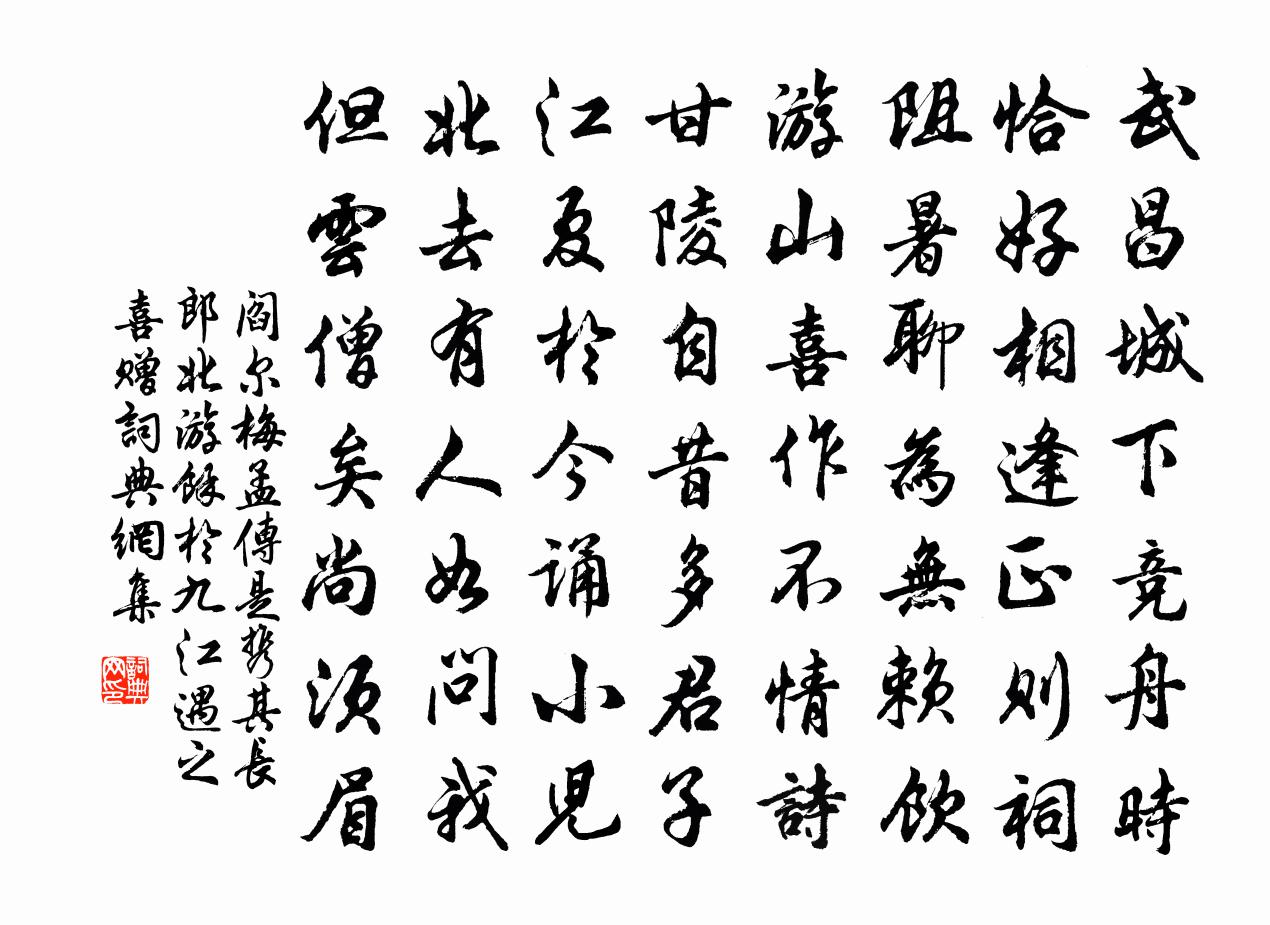 武昌城下竞舟時
恰好相逢正则祠
阻暑聊為無赖飲
游山喜作不情詩
甘陵自昔多君子
江夏於今诵小児
北去有人如問我
但雲僧矣尚须眉
阎尔梅孟傳是携其長
郎北游餘於九江遇之
喜赠詞典網集
詞典网印